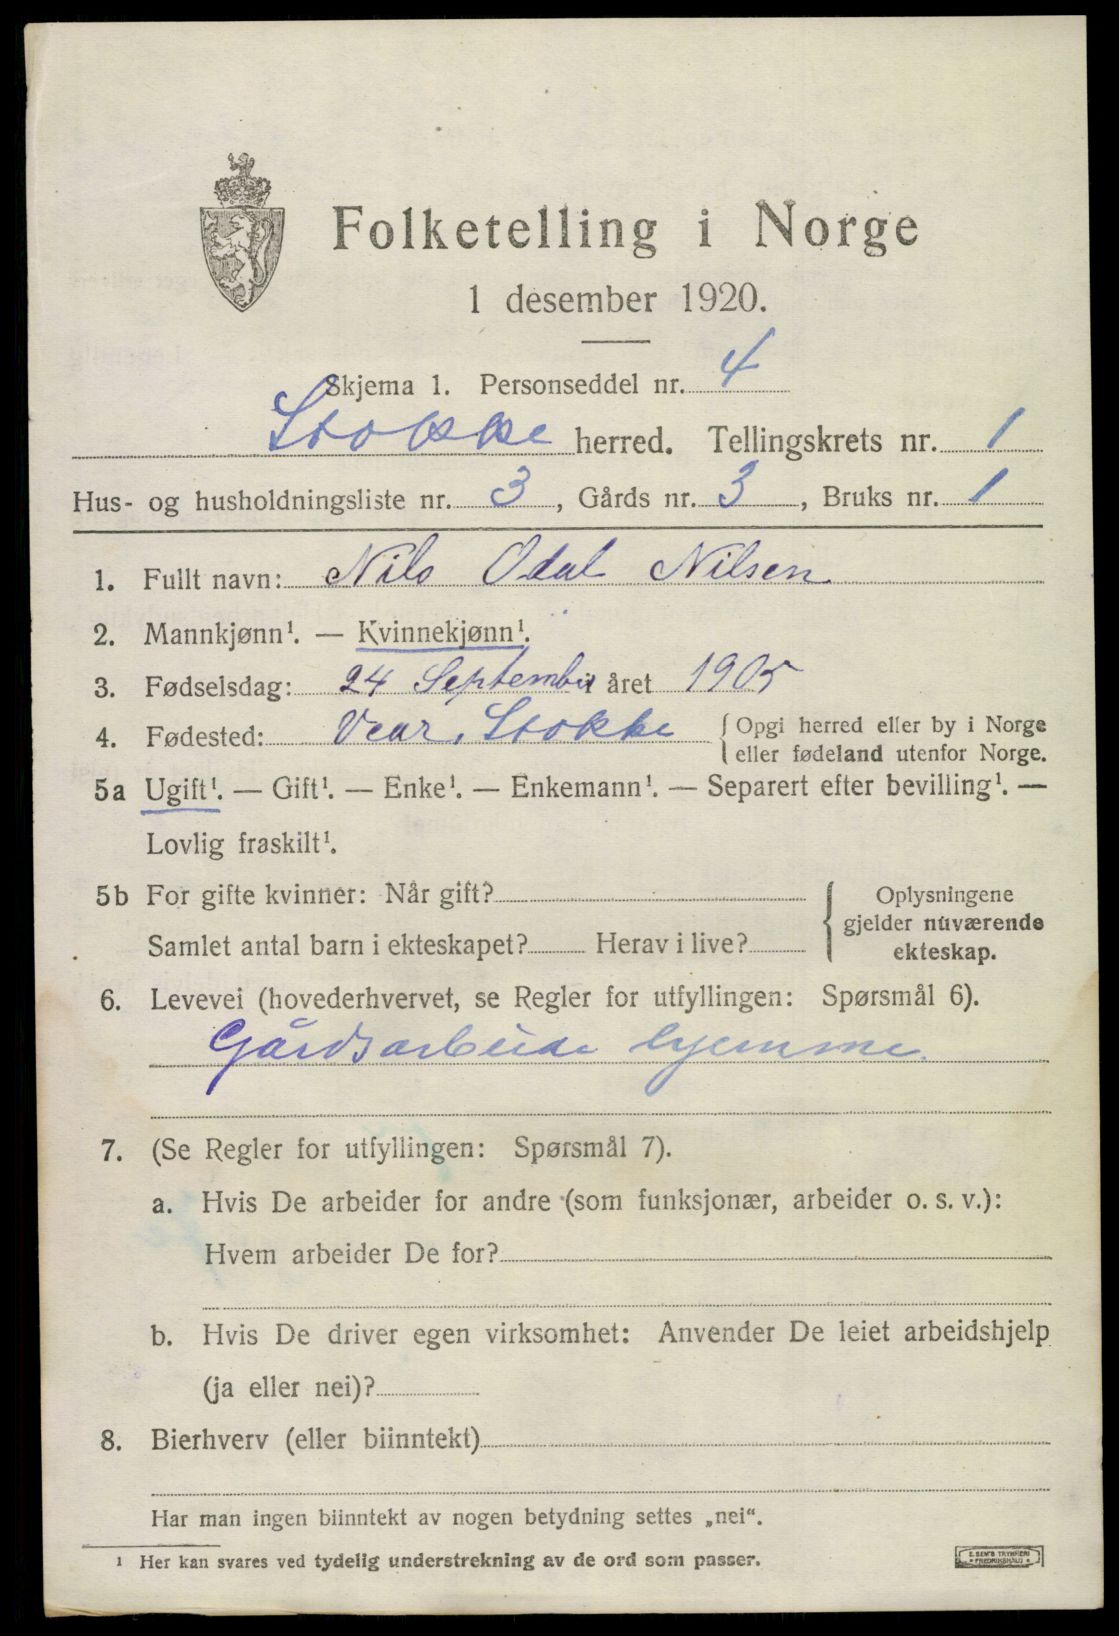 Folketelling i Norge
1 desember 1920.
Skjema 1. Personseddel nr. 4
Stokke herred. Tellingskrets nr. 1
Hus- og husholdningsliste nr. 3, Gårds nr. 3, Bruks nr. 1
1. Fullt navn: Nils Odal Nilsen
2. Mannkjønn¹. — Kvinnekjønn¹.
3. Fødselsdag: 24 September året 1905
4. Fødested: Vear, Stokke {Opgi herred eller by i Norge
eller fødeland utenfor Norge.
5a Ugift¹. — Gift¹. — Enke¹. — Enkemann¹. — Separert efter bevilling¹. —
Lovlig fraskilt¹.
5b For gifte kvinner: Når gift?
Samlet antal barn i ekteskapet? Herav i live?
{ Oplysningene
gjelder nuværende
ekteskap.
6. Levevei (hovederhvervet, se Regler for utfyllingen: Spørsmål 6).
Gårdsarbeide hjemme.
7. (Se Regler for utfyllingen: Spørsmål 7).
a. Hvis De arbeider for andre (som funksjonær, arbeider o. s. v.):
Hvem arbeider De for?
b. Hvis De driver egen virksomhet: Anvender De leiet arbeidshjelp
(ja eller nei)?
8. Bierhverv (eller biinntekt)
Har man ingen biinntekt av nogen betydning settes „nei“.
¹ Her kan svares ved tydelig understrekning av de ord som passer.